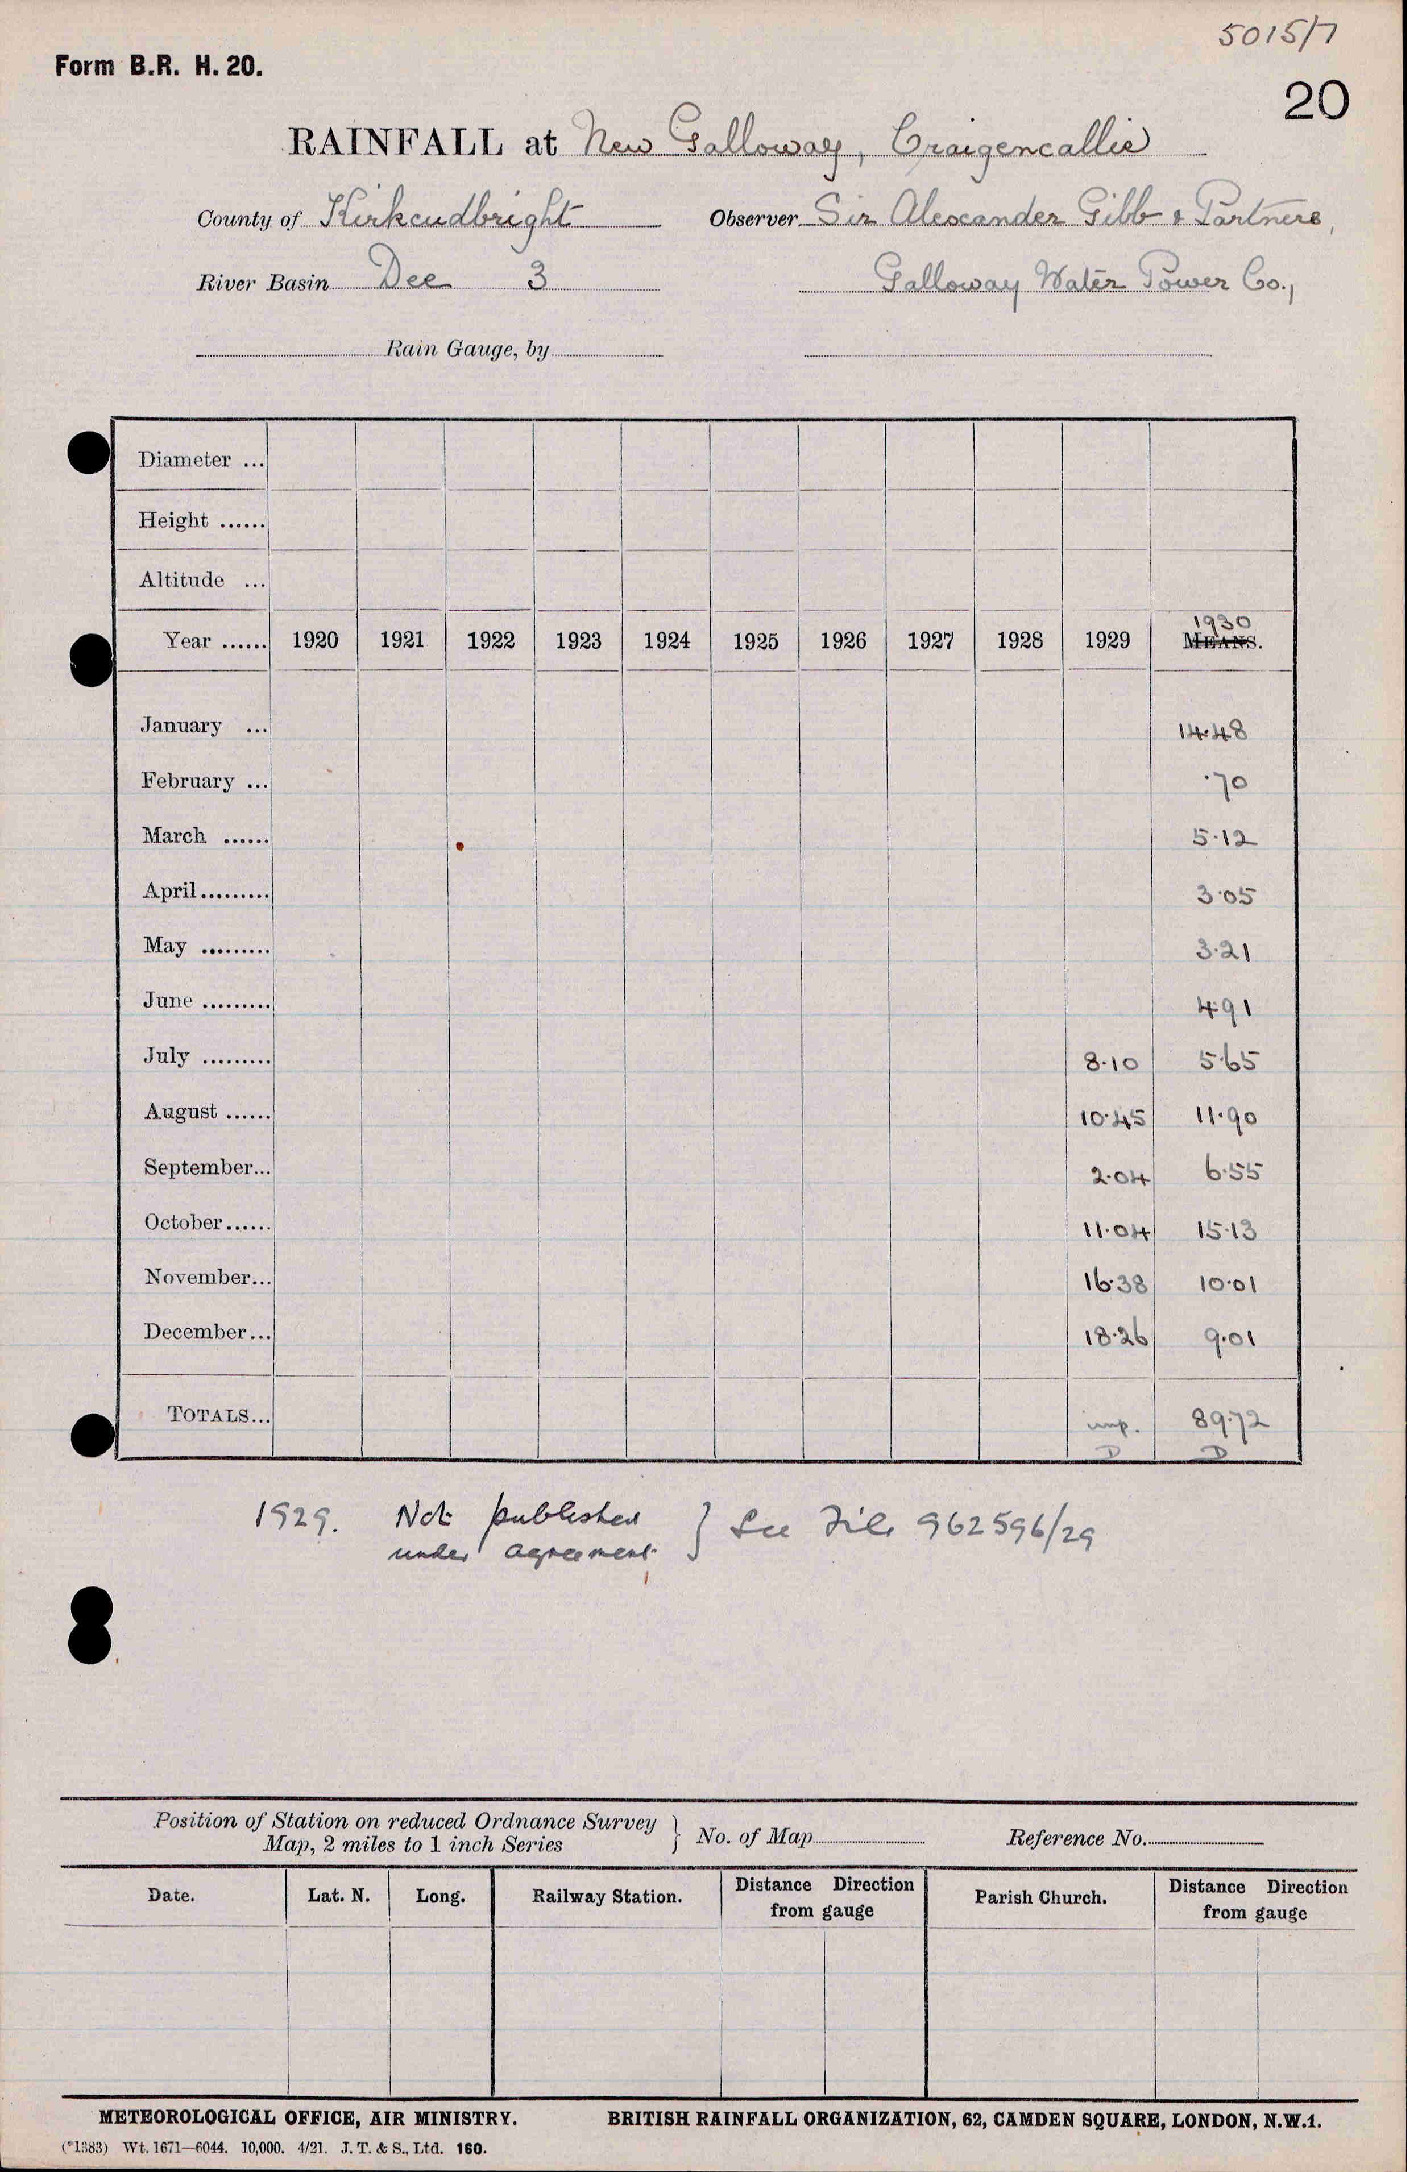 5015/7
Form B.R. H. 20.
20
RAINFALL at New Galloway, Craigencallie
County of Kirkcudbright Observer Sir Alexander Gibb & Partners,
River Basin Dee 3 Galloway Water Power Co.,
Rain Gauge, by
Diameter ...
Height ......
Altitude ...
1930
Year ...... 1920 1921 1922 1923 1924 1925 1926 1927 1928 1929 MEANS.
January ... 14.48
February ... .70
March ...... 5.12
April ......... 3.05
May ......... 3.21
June ......... 4.91
July ......... 8.10 5.65
August ...... 10.45 11.90
September... 2.04 6.55
October...... 11.04 15.13
November... 16.38 10.01
December... 18.26 9.01
TOTALS... imp. 89.72
D D
1929. Not published } See File 962596/29
under agreement.
Position of Station on reduced Ordnance Survey
Map, 2 miles to 1 inch Series } No. of Map Reference No.
Date. Lat. N. Long. Railway Station. Distance Direction from gauge Parish Church. Distance Direction from gauge
METEOROLOGICAL OFFICE, AIR MINISTRY. BRITISH RAINFALL ORGANIZATION, 62, CAMDEN SQUARE, LONDON, N.W.1.
(*1383) Wt. 1671—6044. 10,000. 4/21. J. T. & S., Ltd. 160.